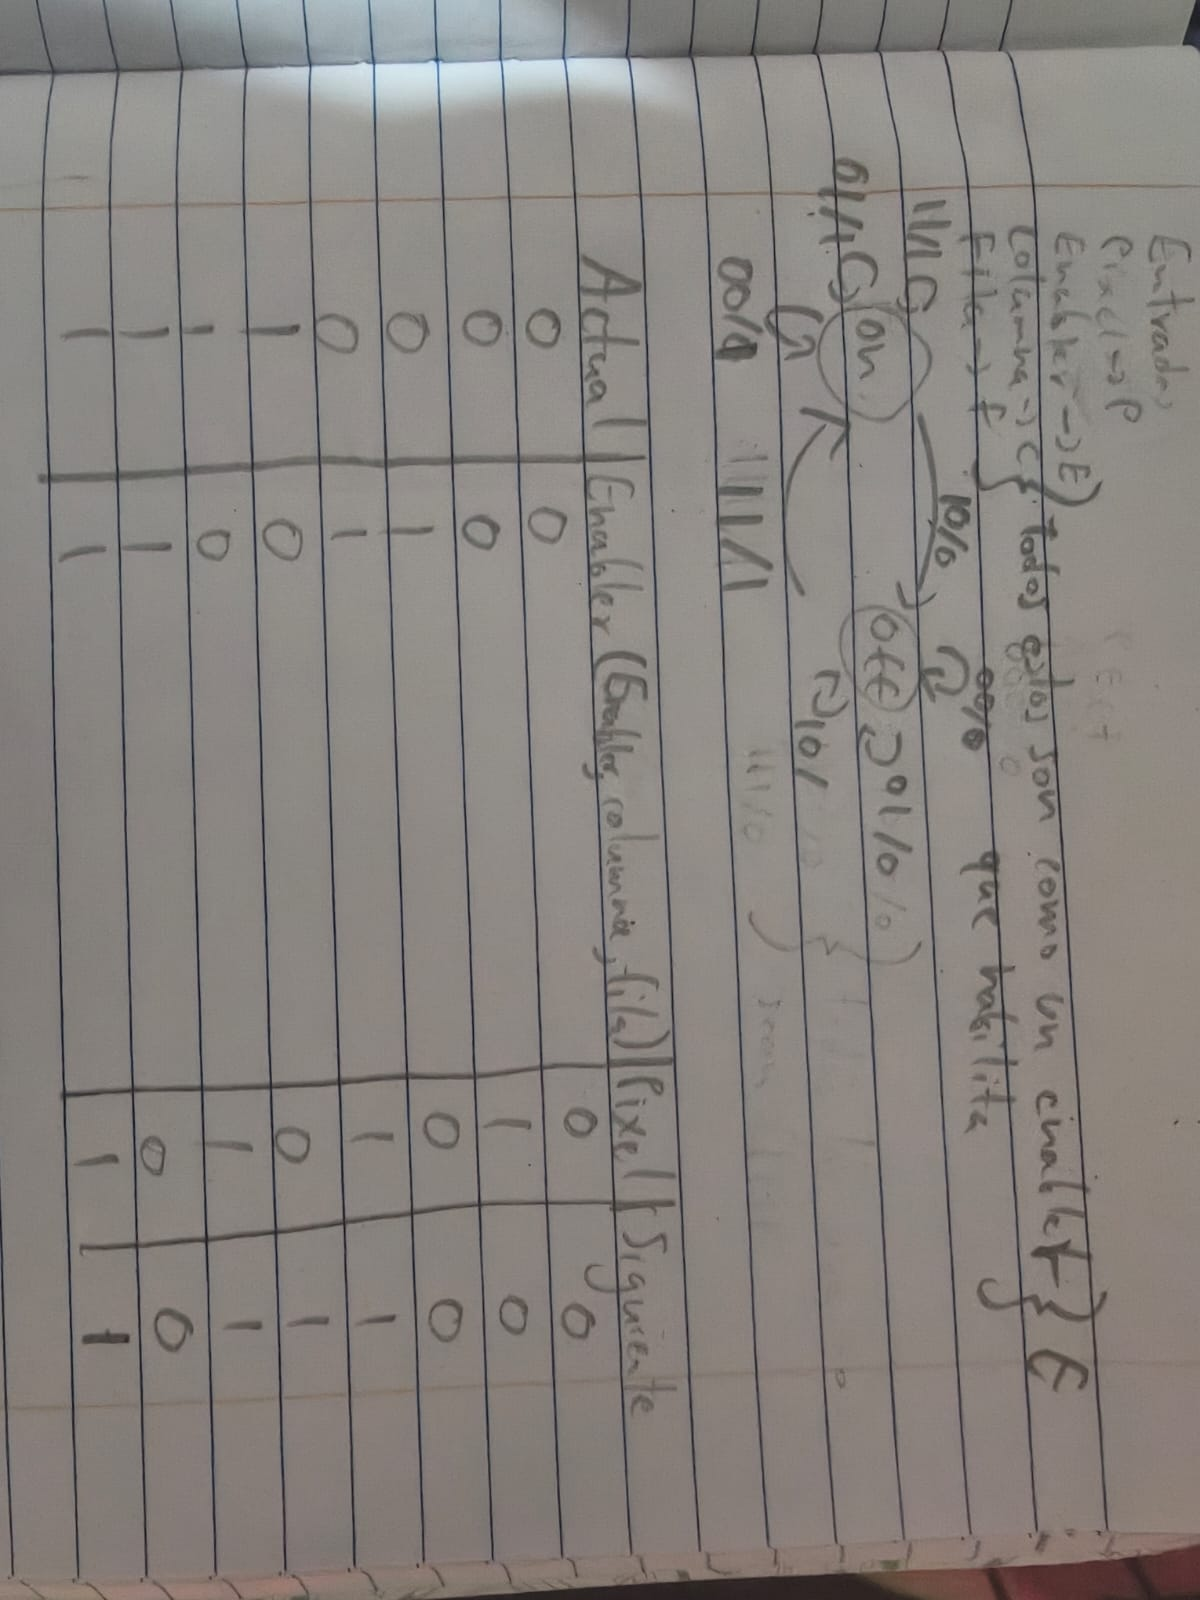 Entradas
Pixel → P
Enabler → E
Columna → C } todos estos son como un enabler } E
Fila → F que habilita
10/0 00/0
11/1 on off 01/0
01/1 101
00/1 11/1
Actual | Enabler (Enabler, columna, fila) | Pixel | Siguiente
0 0 0 0
0 0 1 0
0 1 0 0
0 1 1 1
1 0 0 1
1 0 1 1
1 1 0 0
1 1 1 1